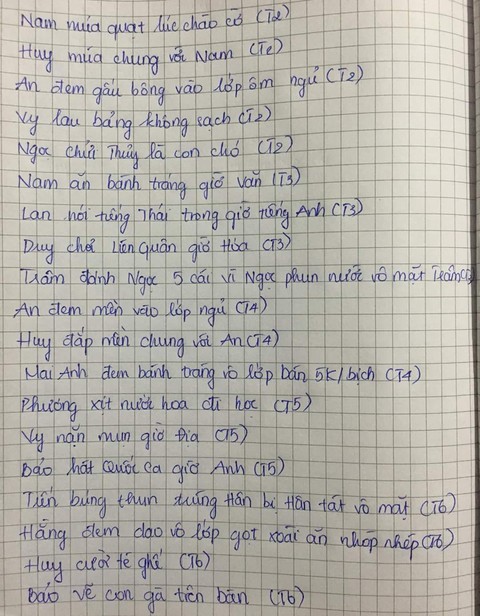 Nam múa quạt lúc chào cờ (T2)
Huy múa chung với Nam (T2)
An đem gấu bông vào lớp ôm ngủ (T2)
Vy lau bảng không sạch (T2)
Ngọc chửi Thủy là con chó (T2)
Nam ăn bánh tráng giờ văn (T3)
Lan nói tiếng Thái trong giờ tiếng Anh (T3)
Duy chơi Liên Quân giờ Hóa (T3)
Trâm đánh Ngọc 5 cái vì Ngọc phun nước vô mặt Trâm
An đem mền vào lớp ngủ (T4)
Huy đắp mền chung với An (T4)
Mai Anh đem bánh tráng vô lớp bán 5K/bịch (T4)
Phương xịt nước hoa đi học (T5)
Vy nặn mụn giờ Địa (T5)
Bảo hát Quốc ca giờ Anh (T5)
Tiến búng thun trúng Hân bị Hân tát vô mặt (T6)
Hằng đem dao vô lớp gọt xoài ăn nhóp nhép (T6)
Huy cười té ghế (T6)
Bảo vẽ con gà trên bàn (T6)